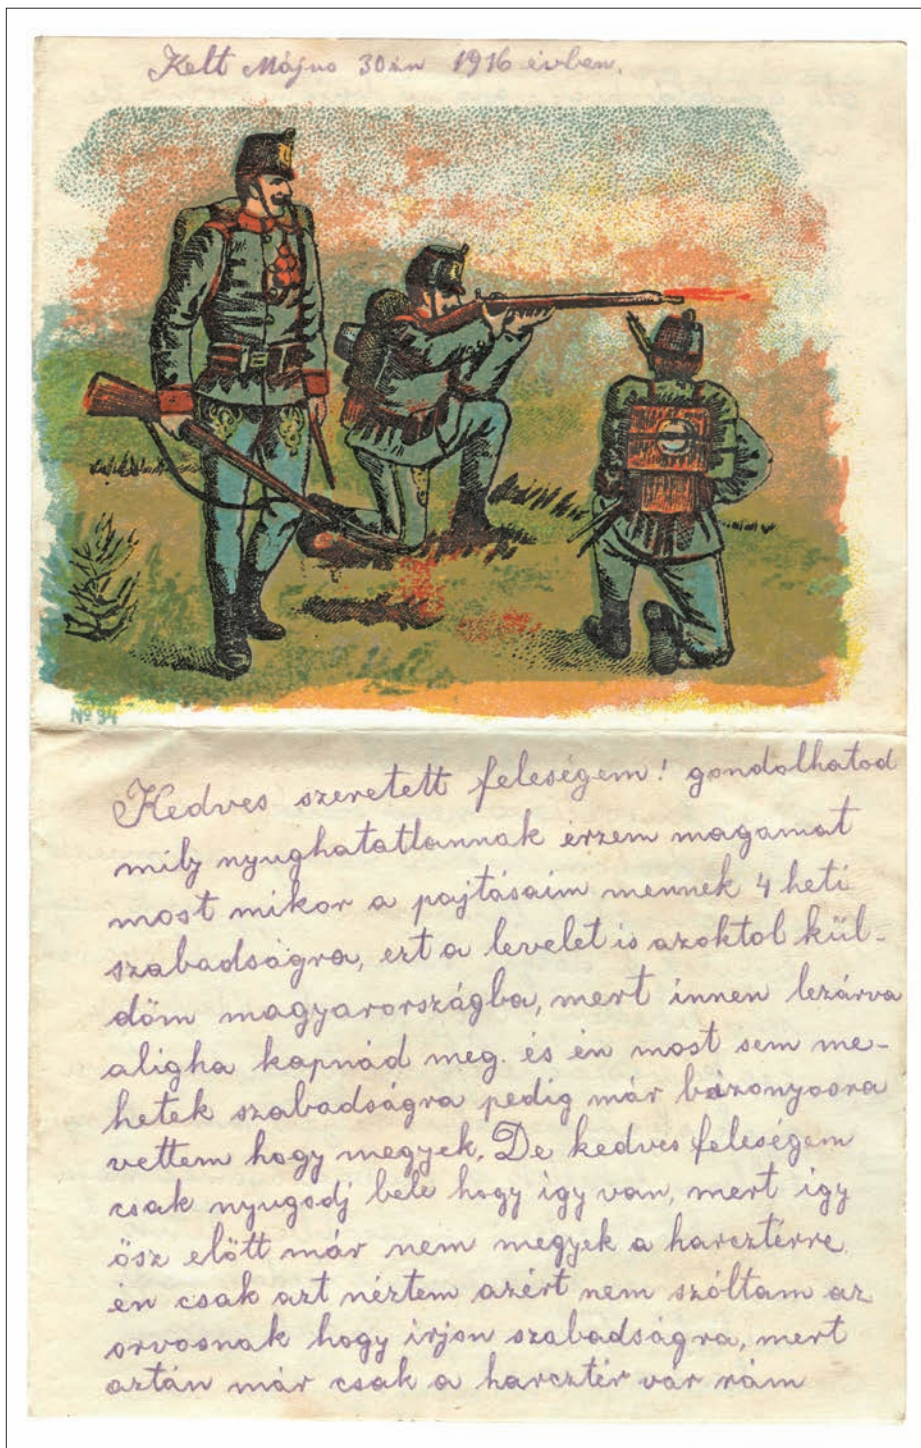 Kelt Május 30án 1916 évben.
Nº 94
Kedves szeretett feleségem! gondolhatod
mily nyughatatlannak érzem magamat
most mikor a pajtásaim mennek 4 heti
szabadságra, ezt a levelet is azoktol kül-
döm magyarországba, mert innen lezárva
aligha kapnád meg. és én most sem me-
hetek szabadságra pedig már bizonyosra
vettem hogy megyek. De kedves feleségem
csak nyugodj bele hogy igy van, mert igy
ősz előtt már nem megyek a harcztérre
én csak azt néztem azért nem szóltam az
orvosnak hogy irjon szabadságra, mert
aztán már csak a harcztér vár rám